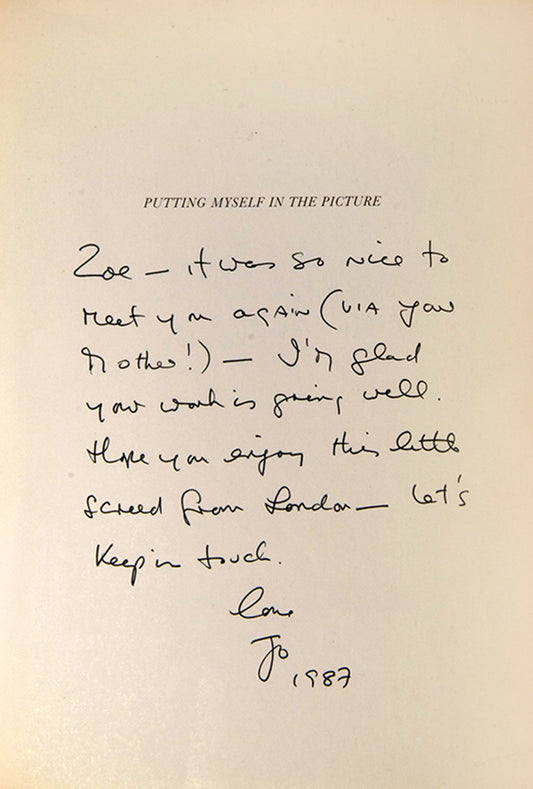 PUTTING MYSELF IN THE PICTURE
Zoe — it was so nice to
meet you again (VIA your
Mother!) — I'm glad
your work is going well.
Hope you enjoy this little
screed from London — Let's
Keep in touch.
love
Jo
1987